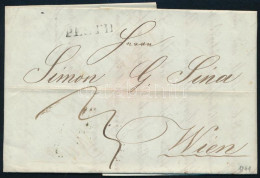 PESTH
Herrn
Simon G. Sina
Wien